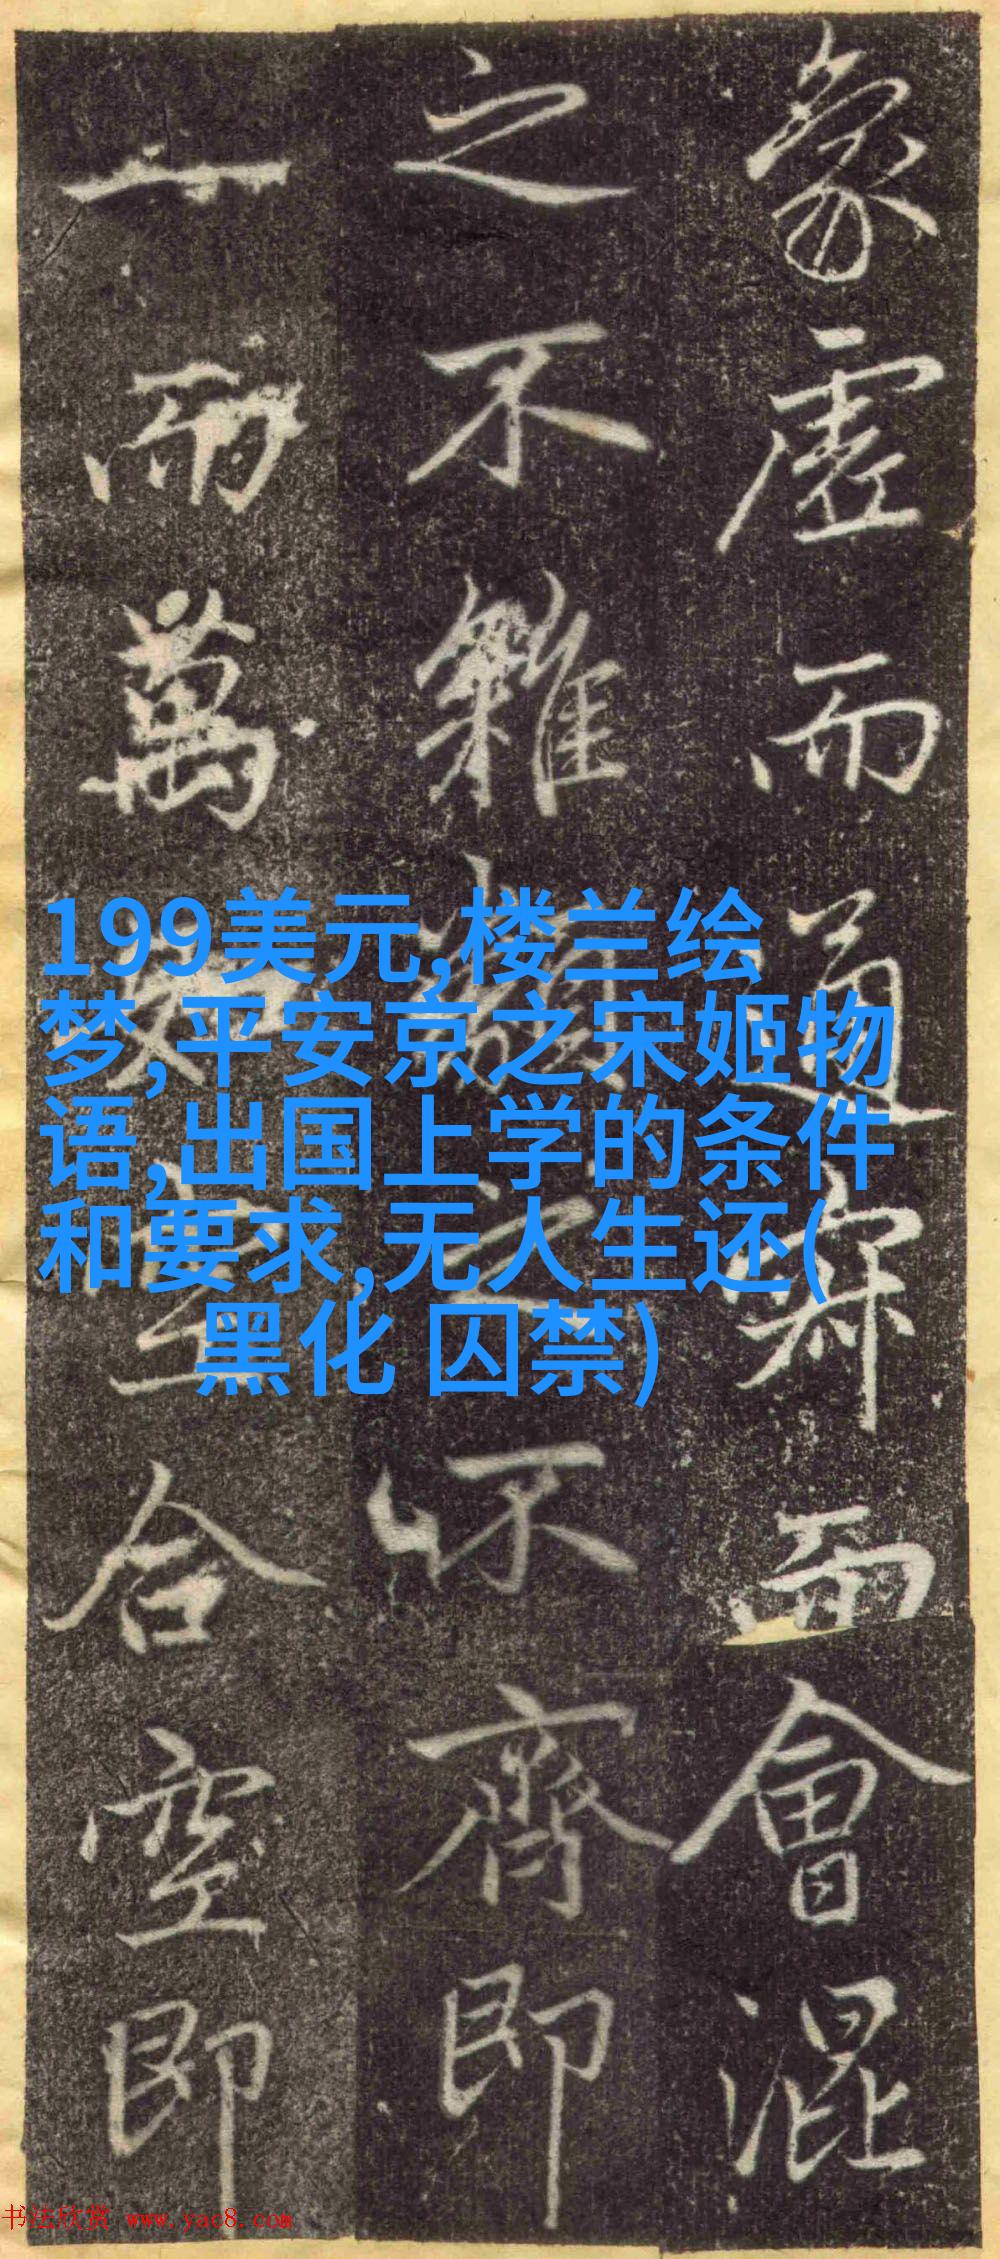 象虛而通寂而會混
之不雜險之不
齊即
一而萬
合空即
199美元,楼兰绘
梦,平安京之宋姬物
语,出国上学的条件
和要求,无人生还(
黑化 囚禁)
书法欣赏 www.yac8.com